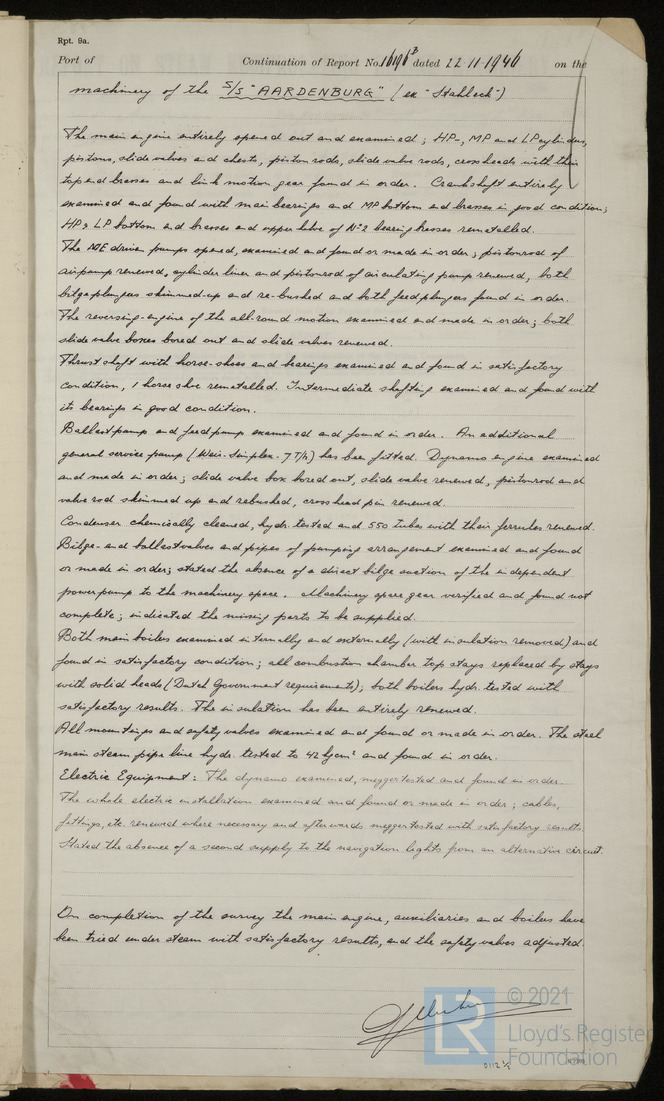 Rpt. 9a.
Port of Continuation of Report No. 16196B dated 22 11 1946 on the
machinery of the S/S "AARDENBURG" (ex "Stahleck")
The main engine entirely opened out and examined; HP-, MP and LP cylinders,
pistons, slide valves and chests, piston rods, slide valve rods, crossheads with their
top end brasses and link motion gear found in order. Crankshaft entirely
examined and found with main bearings and MP bottom end brasses in good condition;
HP & LP bottom end brasses and upper lobe of No 2 bearing brasses remetalled.
The ME driven pumps opened, examined and found or made in order; pistonrod of
airpump renewed, cylinder liner and pistonrod of circulating pump renewed, both
bilgeplungers skimmed-up and re-bushed and both feedplungers found in order.
The reversing-engine of the all-round motion examined and made in order; both
slide valve boxes bored out and slide valves renewed.
Thrust shaft with horse-shoes and bearings examined and found in satisfactory
condition, 1 horse shoe remetalled. Intermediate shafting examined and found with
its bearings in good condition.
Ballastpump and feedpump examined and found in order. An additional
general service pump (Weir-Simplex-7T/h) has been fitted. Dynamo engine examined
and made in order; slide valve box bored out, slide valve renewed, pistonrod and
valve rod skimmed up and rebushed, crosshead pin renewed.
Condenser chemically cleaned, hydr. tested and 550 tubes with their ferrules renewed.
Bilge- and ballastvalves and pipes of pumping arrangement examined and found
or made in order; stated the absence of a direct bilge suction of the independent
powerpump to the machinery space. Machinery spare gear verified and found not
complete; indicated the missing parts to be supplied.
Both main boilers examined internally and externally (with insulation removed) and
found in satisfactory condition; all combustion chamber top stays replaced by stays
with solid heads (Dutch Government requirements); both boilers hydr. tested with
satisfactory results. The insulation has been entirely renewed.
All mountings and safety valves examined and found or made in order. The steel
main steam pipe line hydr. tested to 42 kg/cm² and found in order.
Electric Equipment: The dynamo examined, meggertested and found in order.
The whole electric installation examined and found or made in order; cables,
fittings, etc. renewed where necessary and afterwards meggertested with satisfactory results.
Stated the absence of a second supply to the navigation lights from an alternative circuit.
On completion of the survey the main engine, auxiliaries and boilers have
been tried under steam with satisfactory results, and the safety valves adjusted.
LR
© 2021
Lloyd's Register
Foundation
0112 ½